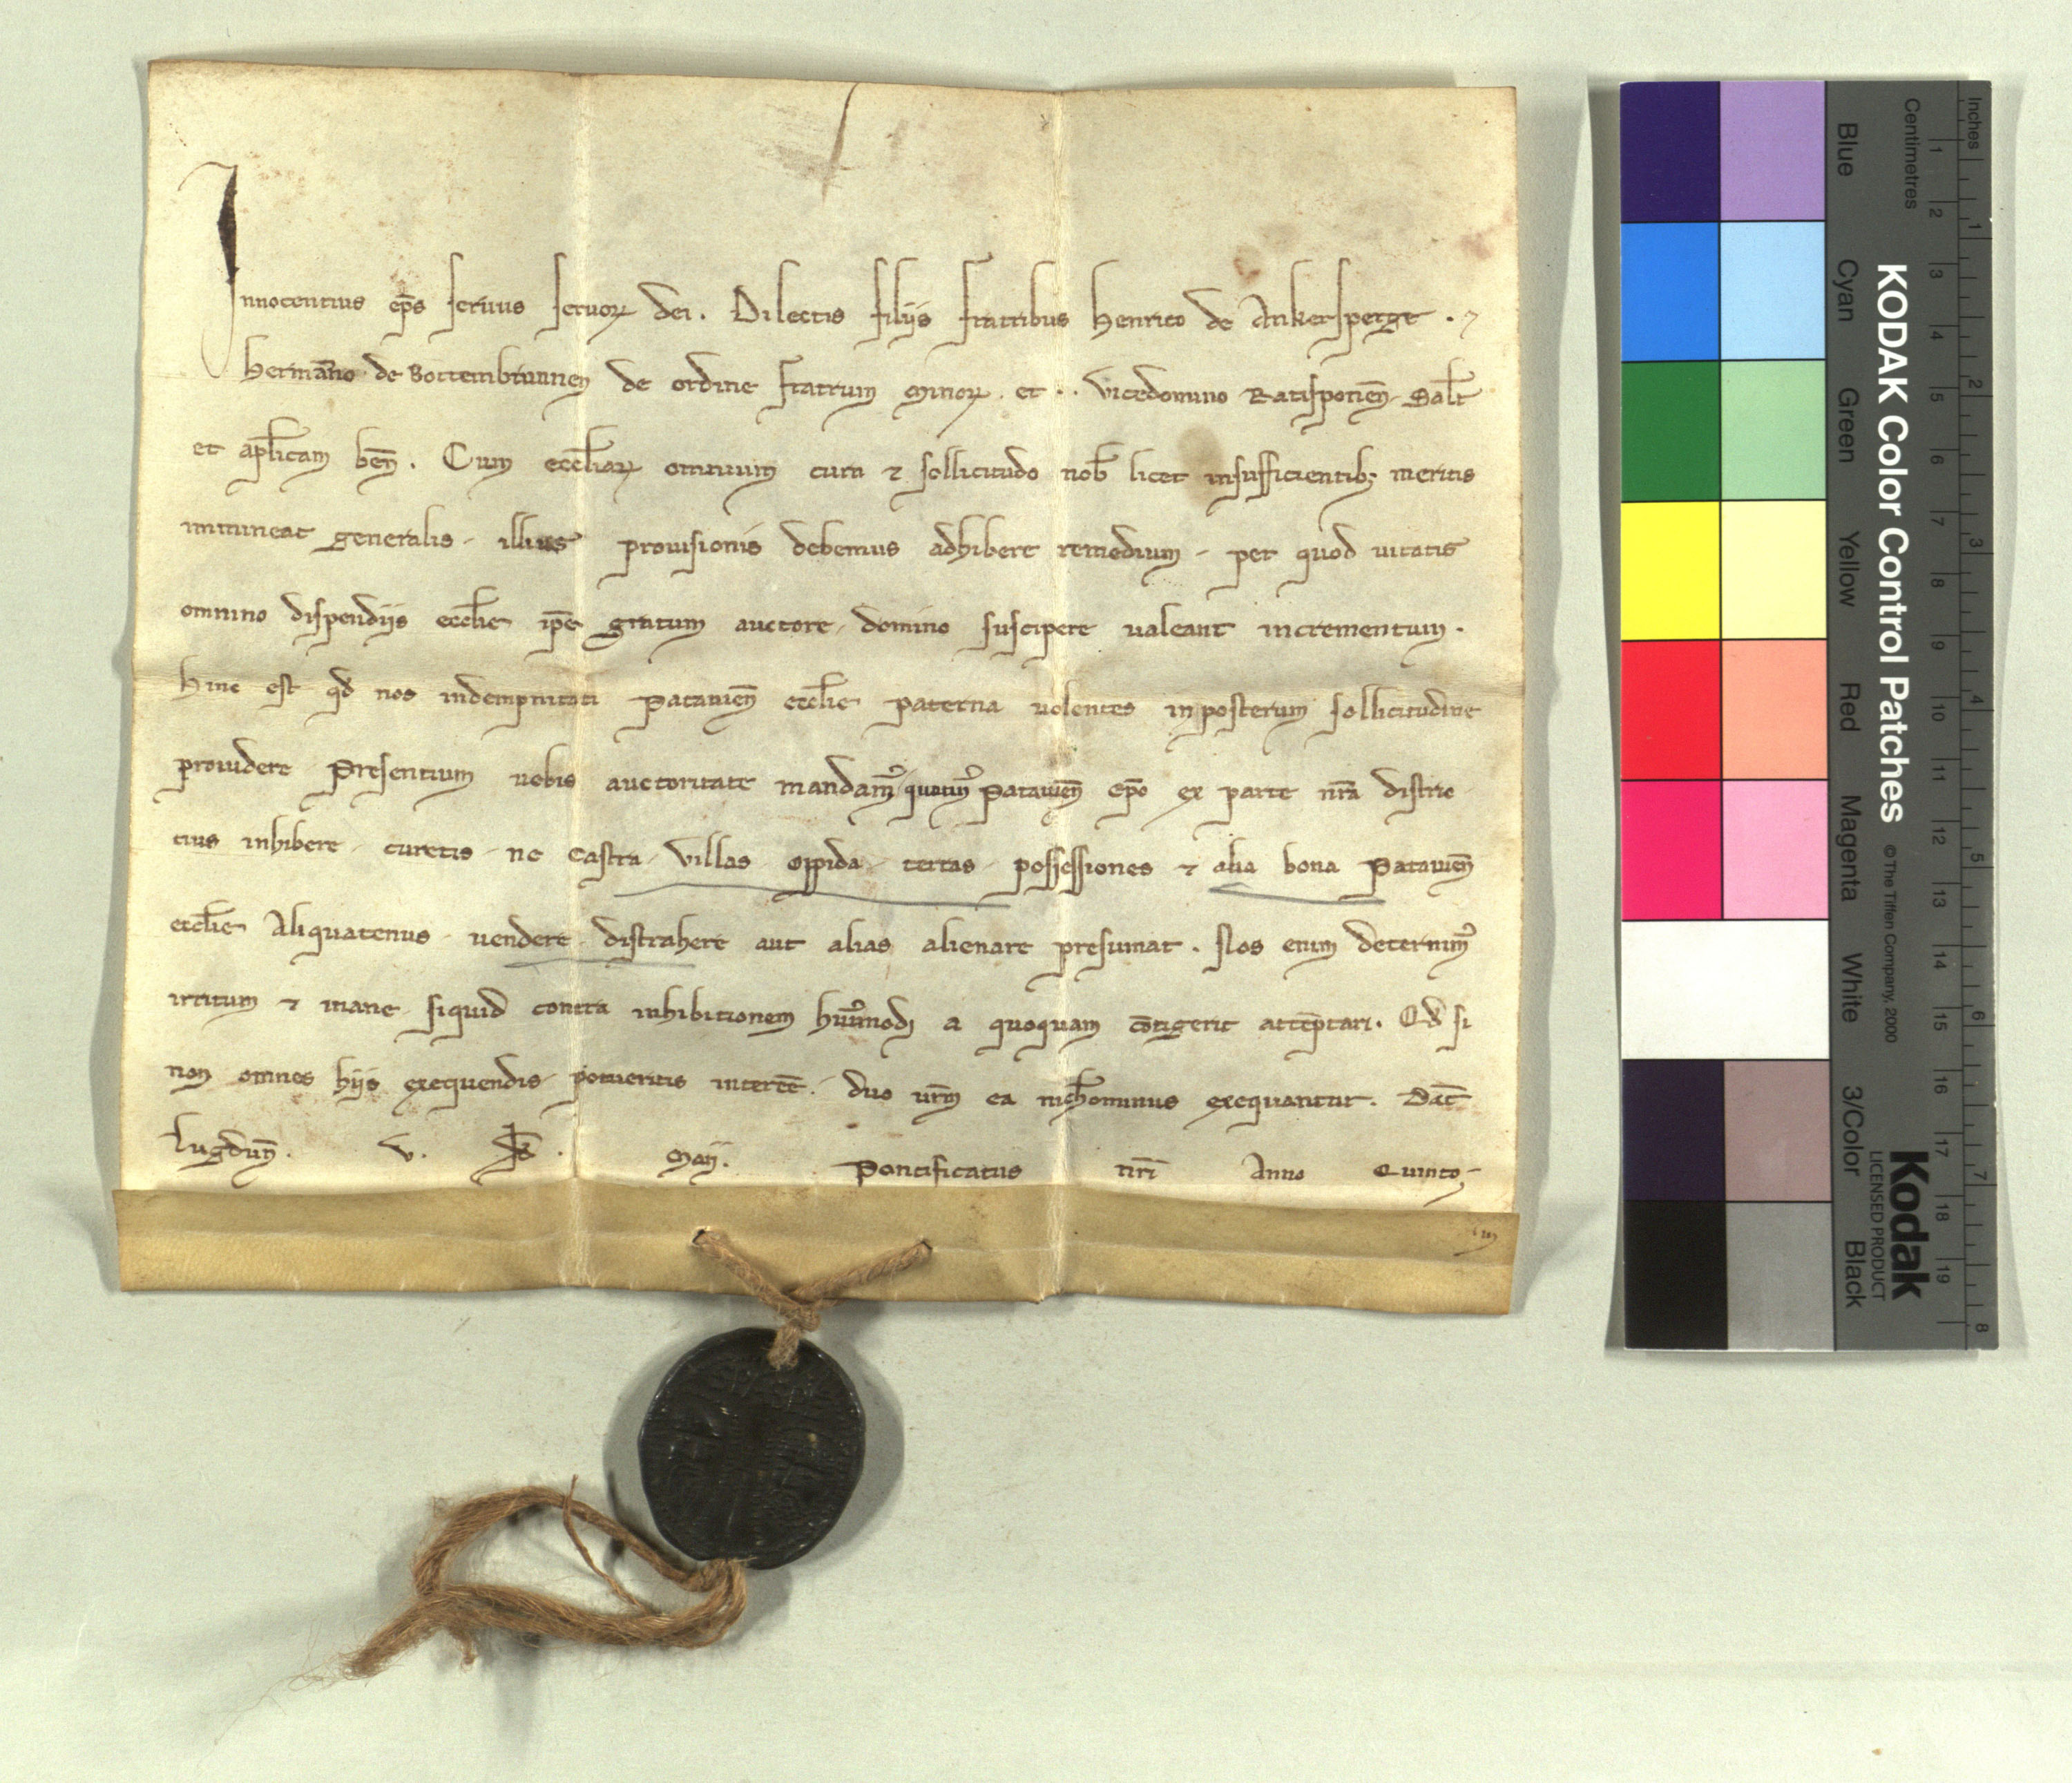 Innocentius ep̄s seruus seruoꝝ dei. Dilectis filijs fratribus Henrico de Ankersperge . ⁊
Hermāno de Bottembrunnen de ordine fratrum Minoꝝ . et . . Vicedomino Ratisponeñ . Sal̄t
et ap̄licam beñ . Cum eccl̄iaꝝ omnium cura ⁊ sollicitudo nob̄ licet insufficientibꝫ meritis
immineat generalis . illius prouisionis debemus adhibere remedium . per quod uitatis
omnino dispendijs eccl̄ie ip̄e gratum auctore domino suscipere ualeant incrementum .
Hinc est qđ nos indempnitati Patauieñ eccl̄ie paterna uolentes inposterum sollicitudine
prouidere Presentium uobis auctoritate mandamꝰ quatinꝰ Patauieñ ep̄o ex parte nr̄a distric
tius inhibere curetis ne Castra . Villas oppida . terras . possessiones ⁊ alia bona Patauieñ
eccl̄ie Aliquatenus . uendere distrahere aut alias alienare presumat . Nos enim decernimꝰ
irritum ⁊ inane siquid contra inhibitionem huiꝰmodi a quoquam cōtigerit attēptari . Qđ si
non omnes hijs exequendis potueritis interēe . duo ur̄m ea nich̄ominus exequantur . Dat̄
Lugduñ . V . kł . Maij . Pontificatus nr̄i Anno Quinto
KODAK Color Control Patches
© The Tiffen Company, 2000
Kodak
LICENSED PRODUCT
Inches 1 2 3 4 5 6 7 8
Centimetres 1 2 3 4 5 6 7 8 9 10 11 12 13 14 15 16 17 18 19
Blue Cyan Green Yellow Red Magenta White 3/Color Black